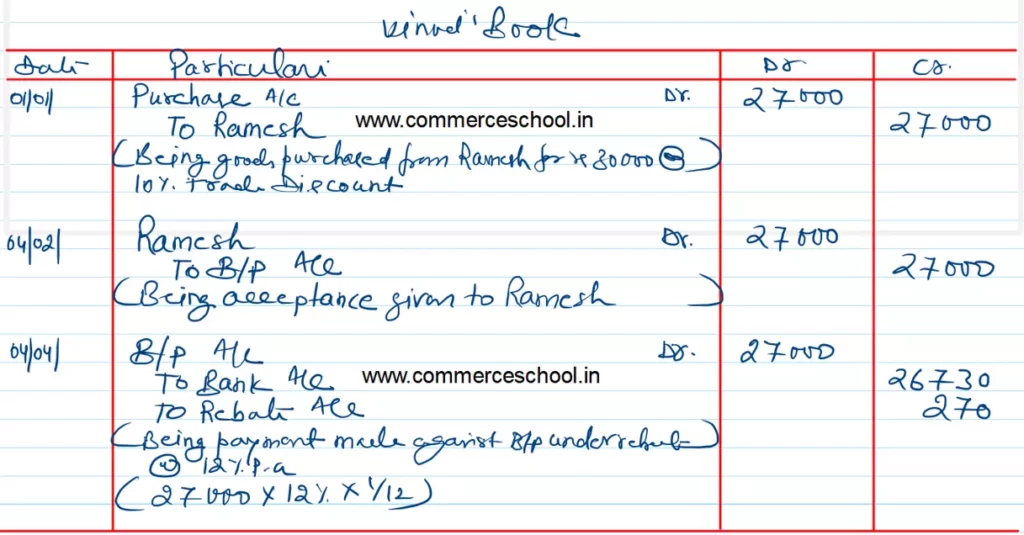 Vinod' Book
Date Particulars Dr Cr.
01/01/ Purchase A/c Dr. 27000
To Ramesh www.commerceschool.in 27000
(Being goods purchased from Ramesh for Rs 30000 ⊖)
10% Trade Discount
04/02/ Ramesh Dr. 27000
To B/P A/c 27000
(Being acceptance given to Ramesh)
04/04/ B/P A/c Dr. 27000
To Bank A/c www.commerceschool.in 26730
To Rebate A/c 270
(Being payment made against B/P under rebate)
@ 12% p.a
(27000 X 12% X 1/12)